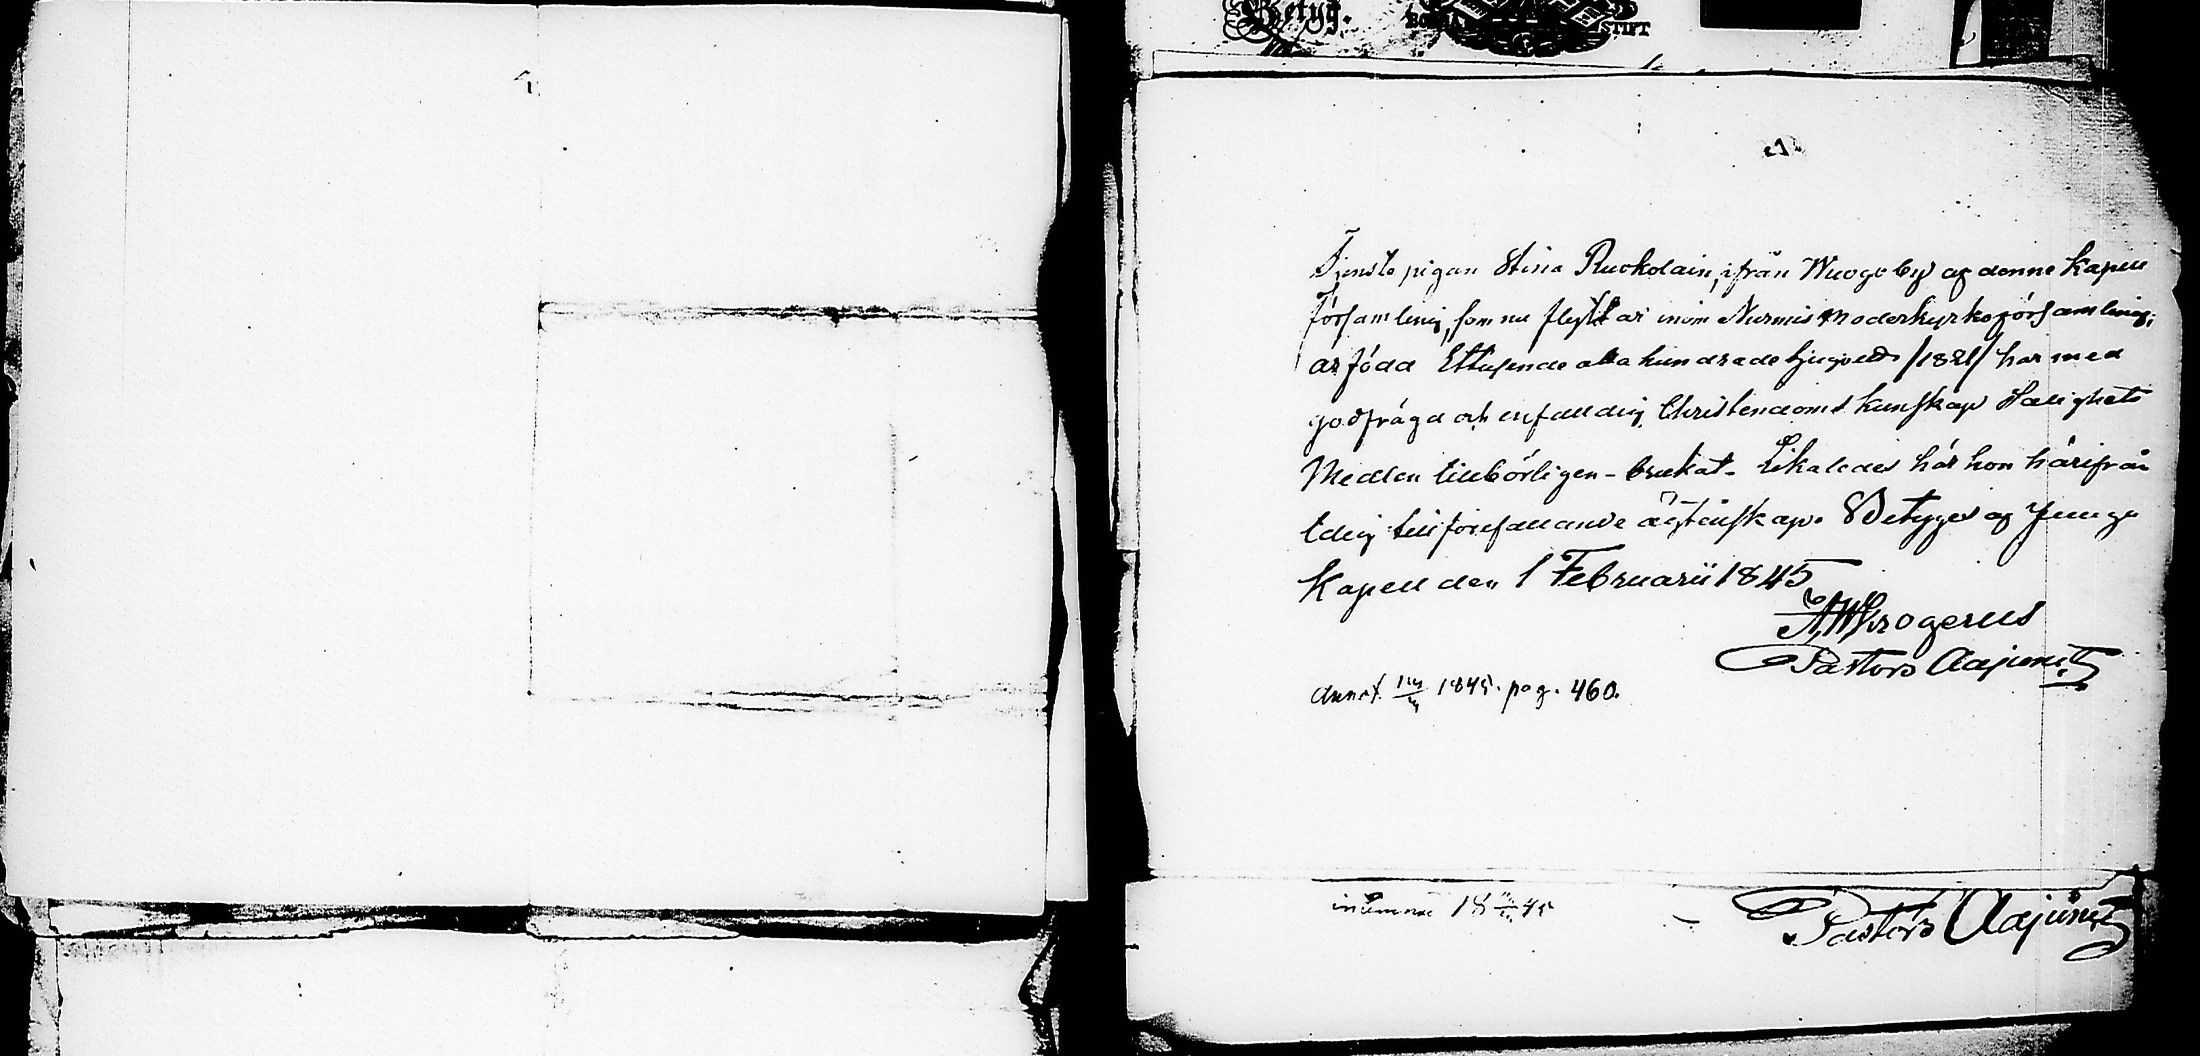 Betyg. BORGA STIFT
Tjenste pigan Stina Ruokolain, ifrån Wuogo by af denne Kapell
församling, som nu flyttar inom Nurmis moderkyrkoförsamling;
är född Ettusende åtta hundrade tjugoett /1821/ har med
godfrägd och enfalldig Christendoms kunskap Salighets
Medlen tillbörligen - brukat - Likaledes här hon härifrån
ledig till förefallande ägtenskap. Betyges af
Kapell den 1 Februarii 1845
Krogerus
Pastors Adjunct
Annot. 1845. pag. 460.
inlemnat 18 45
Pastors Adjunct